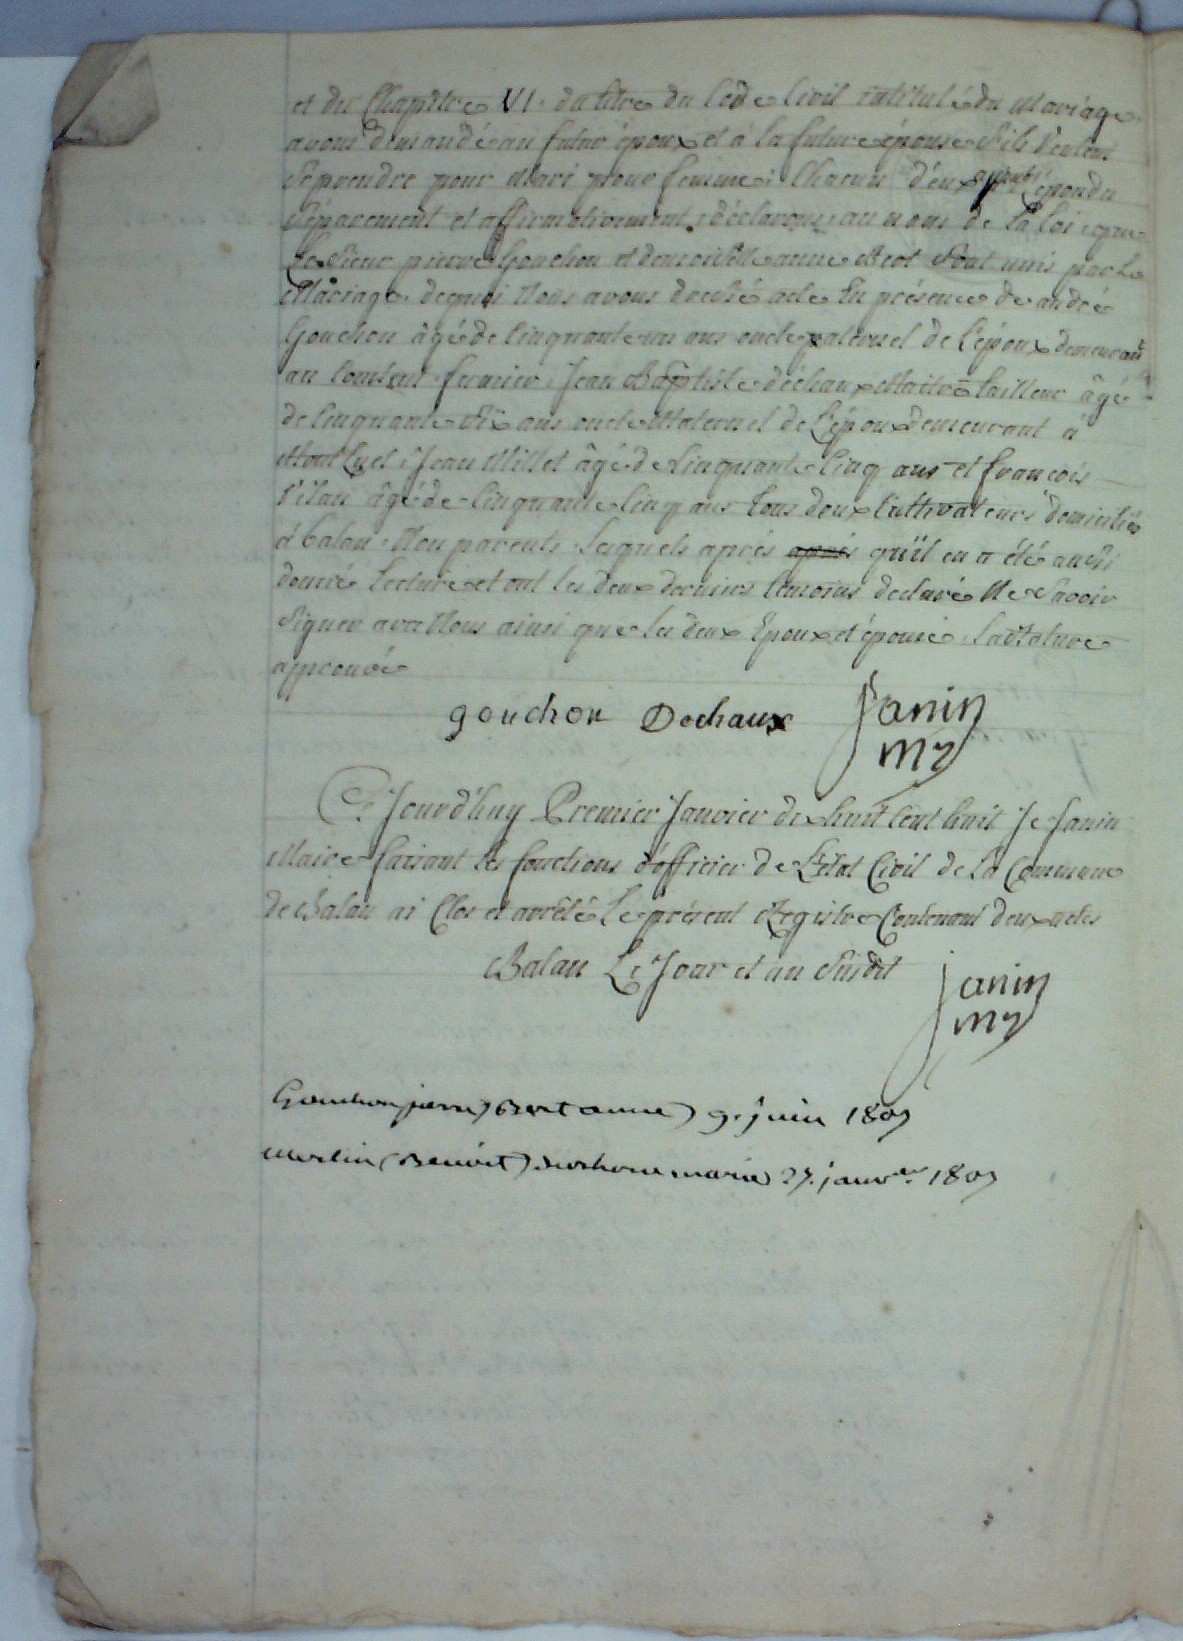 et du Chapitre VI. du titre du Code Civil intitulé du Mariage
avons demandé au futur époux et à la future épouse s'ils veulent
se prendre pour Mari pour femme; Chacun d'eux ayant répondu
séparement et affirmativement, déclarons, au nom de la loi, que
le Sieur pierre Gouchon et demoiselle anne sont unis par le
Mariage. de quoi Nous avons dressé acte En présence de andré
Gouchon âgé de Cinquante un ans oncle paternel de l'époux demeurant
au fermier, Jean Baptiste déchaux Maitre tailleur âgé
de Cinquante six ans oncle Maternel de l'époux demeurant a
Montluel, Jean Millet âgé de Cinquante Cinq ans et françois
âgé de Cinquante Cinq ans tous deux Cultivateurs domiciliés
à balan. Non parents. lesquels après après qu'il en a été aussi
donné Lecture et ont les deux derniers temoins declaré Ne Savoir
Signer avec Nous ainsi que les deux Epoux et épouse. la
approuvé
gouchon Dechaux Janin
my
Ce Jourd'huy Premier Janvier dix huit Cent huit Je Janin
Maire faisant les fonctions d'officier de L'état Civil de la Commune
de Balan ai Clos et arrêté Le présent Registre Contenant deux actes
Balan Le Jour et an Susdit
Janin
my
Gouchon pierre) Bert anne) 9. juin 1807
Merlin (Benoit) marie) 27. janver 1807